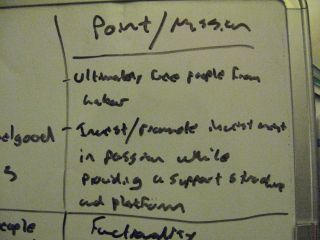 Point/Mission
- Ultimately free people from
elgood
- Invest/promote investment
in passion while
s
providing a support structure
and platform
eople
Functionality